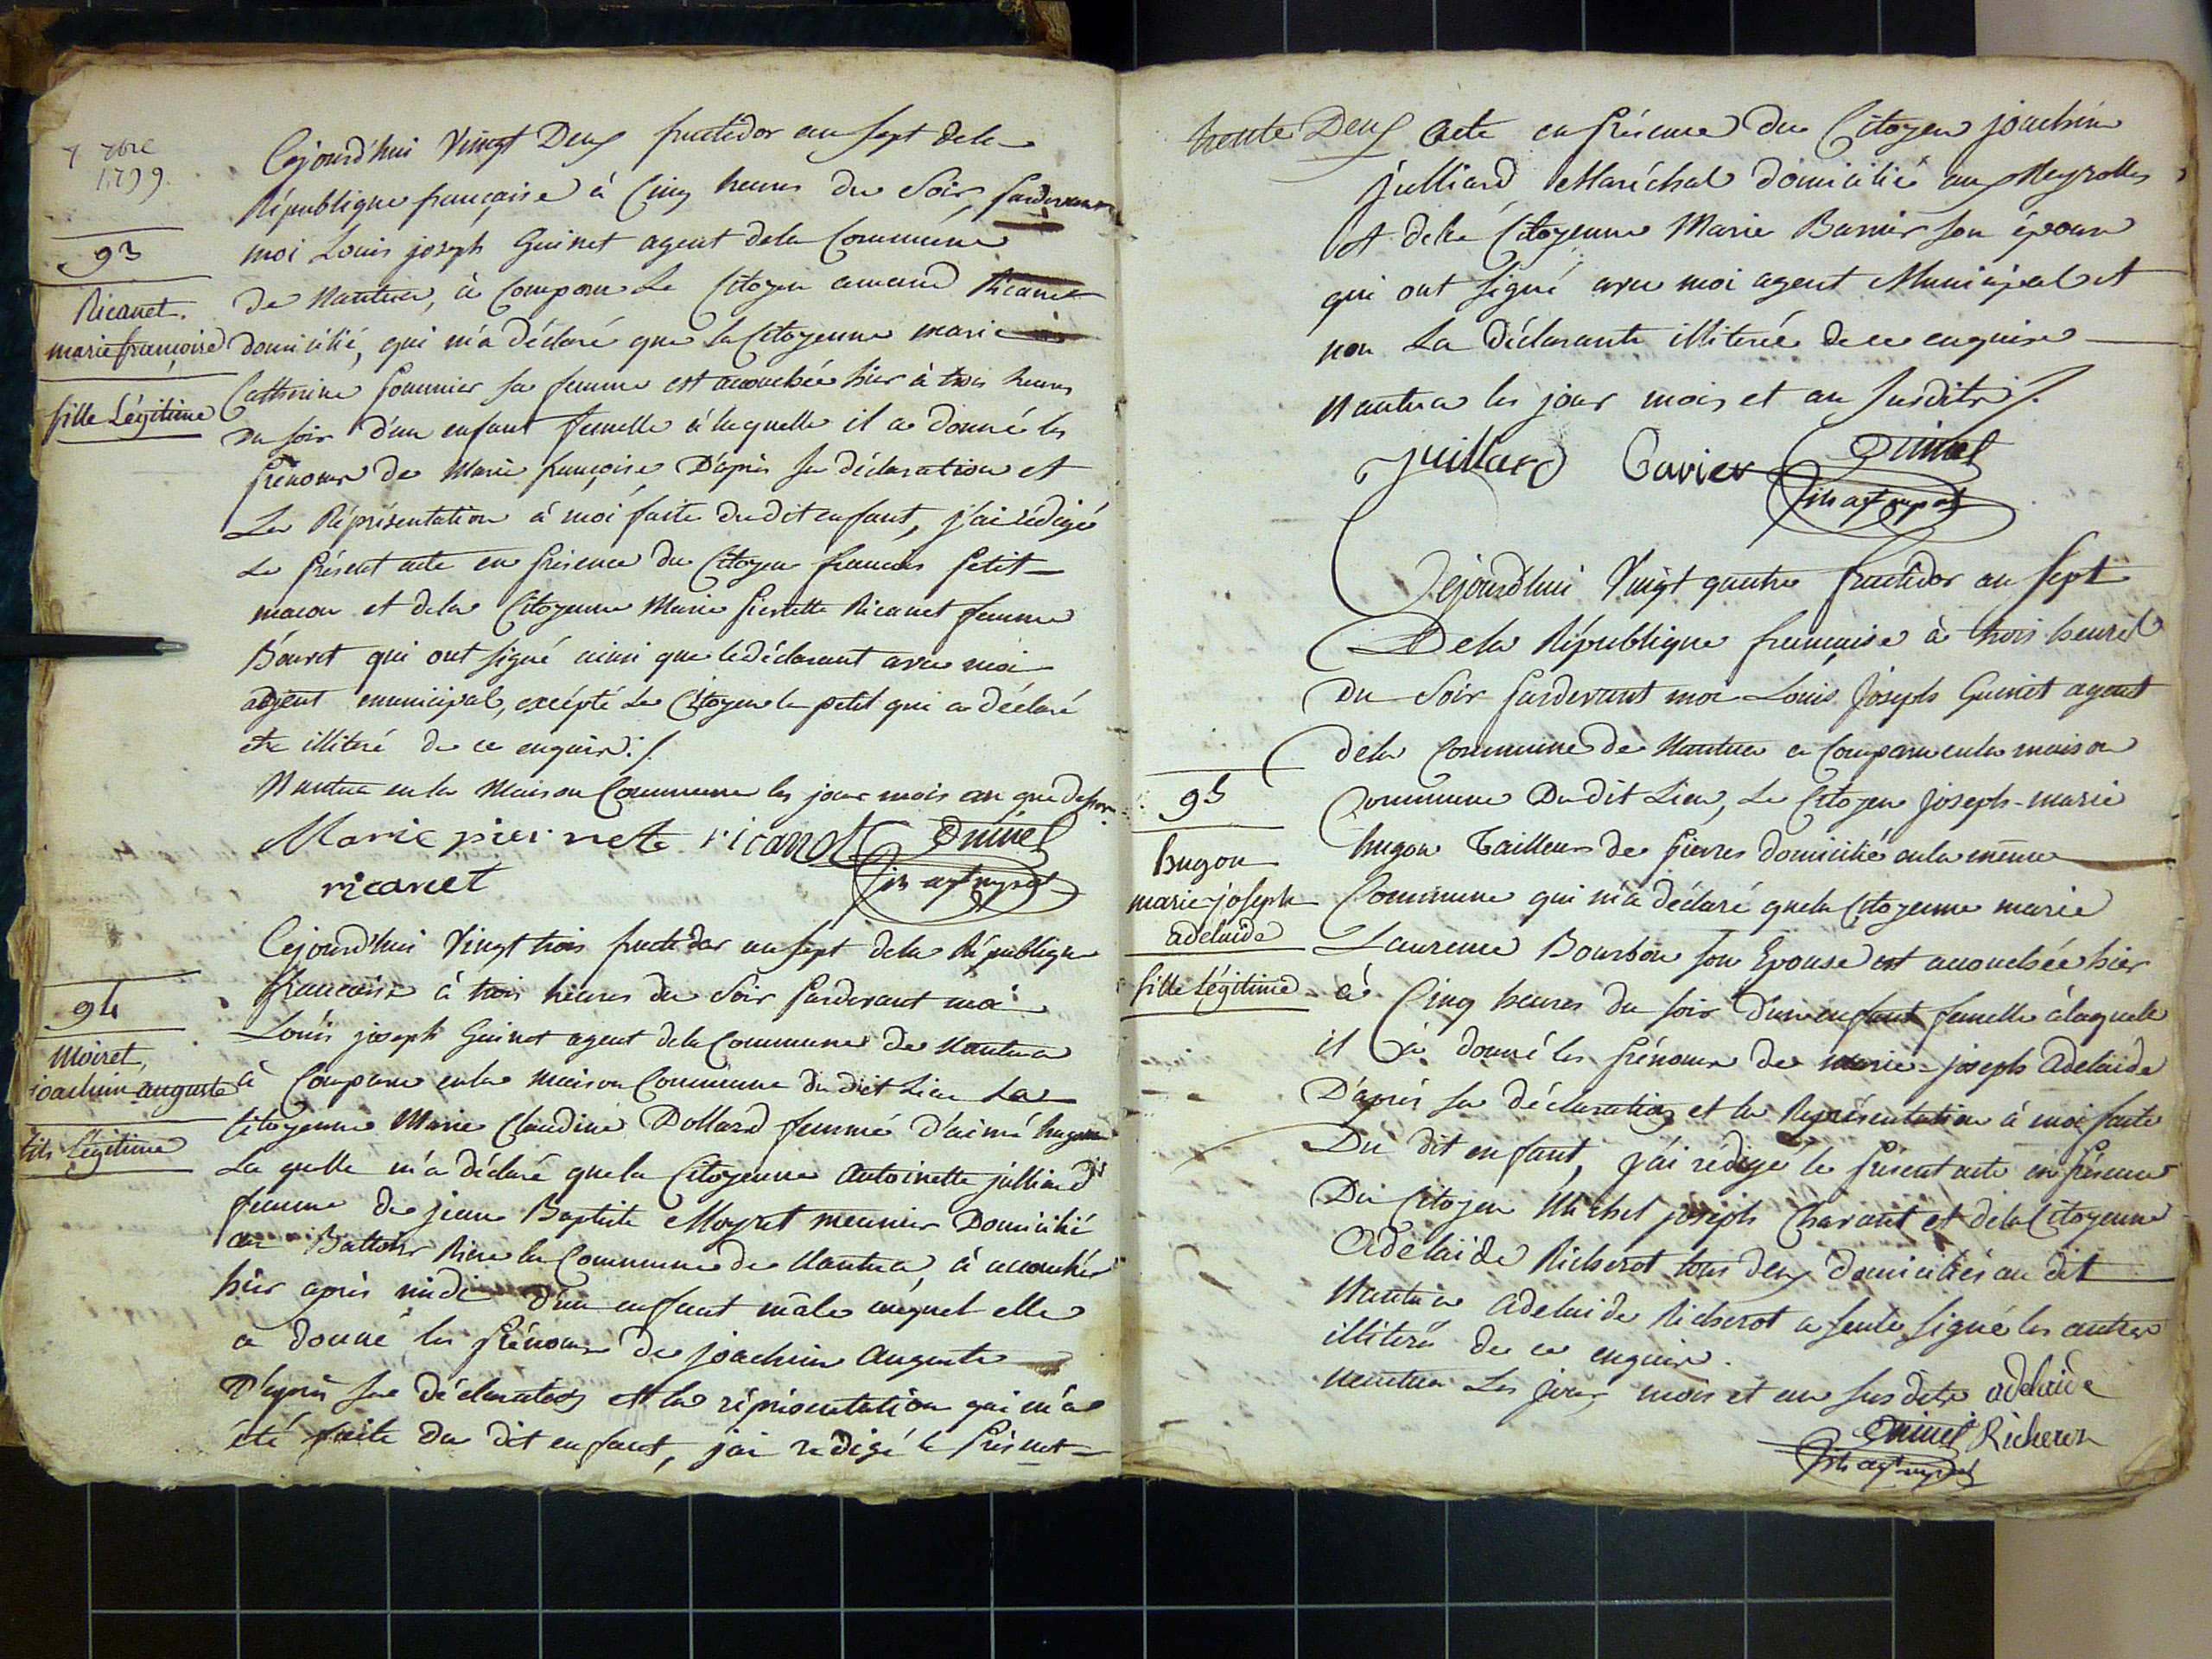 7 7bre
1799.
Cejourd'hui Vingt Deux fructidor an sept dela
République française à Cinq heures du Soir, pardevant
moi Louis joseph Guinet agent dela Commune
de Nantua, à Comparu Le Citoyen amand Ricanet
domicilié, qui m'a déclaré que la Citoyenne marie
Catherine Sommier sa femme est accouchée hier à trois heures
du soir d'un enfant femelle à laquelle il a donné les
prénoms de Marie françoise D'après sa déclaration et
La Réprésentation à moi faite dudit enfant, j'ai rédigé
Le présent acte en présence du Citoyen francois petit
macon et dela Citoyenne Marie pierrette Ricanet femme
Bouvet qui ont signé ainsi que le déclarant avec moi
agent municipal, excépté Le Citoyen le petit qui a déclaré
être illiteré de ce enquis ./.
Nantua en la Maison Commune les jour mois an que dessus
Marie pierrnete ricanet Guinet
ricanet fils agt mpal
93
Ricanet.
marie françoise
fille Légitime
Cejourd'hui Vingt trois fructidor an sept dela République
française à trois heures du Soir pardevant moi
Louis joseph Guinet agent dela Commune de Nantua
à Comparu enla maison Commune du dit Lieu La
Citoyenne Marie Claudine Dollard femme d'aimé hugon
La quelle m'a déclaré quela Citoyenne Antoinette julliard
femme de jean Baptiste Moyret meunier Domicilié
au Battoir Riere la Commune de Nantua, à accouchée
hier après midi d'un enfant mâle auquel elle
a donné les prénoms de joachim Auguste
D'après sa déclaration et la réprésentation qui m'a
été faite du dit enfant, j'ai redigé le présent
94
Moiret,
joachim auguste
fils Légitime
trente Deux acte en présence du Citoyen joachim
julliard Maréchal domicilié aux Neyrolles
et dela Citoyenne Marie Barnier son épouse
qui ont signé avec moi agent Municipal et
non La déclarante illiterée de ce enquise
Nantua les jour mois et an susdits ./.
juillard Guinet
fils agt mpal
Cejourd'hui Vingt quatre fructidor an sept
Dela République française à trois heures
du Soir pardevant moi Louis Joseph Guinet agent
dela Commune de Nantua a Comparu enla maison
Commune Dudit Lieu, Le Citoyen joseph-marie
hugon Tailleur de pierres domicilié enla même
Commune qui m'a déclaré quela Citoyenne marie
Laurence Bourbon son Epouse est accouchée hier
à Cinq heures du soir d'un enfant femelle à laquelle
il à donné les prénoms de marie-joseph Adelaide
D'après sa déclaration et la Représentation à moi faite
Du dit enfant, j'ai rédigé le présent acte en présence
Du Citoyen Michel joseph Charant et dela Citoyenne
Adelaide Richerot tous deux domiciliés au dit
Nantua adelaide Richerot a seule signé les autres
illiterés de ce enquis.
Nantua Les jour mois et an sus dits adelaide
Guinet Richerot
fils agt mpal
95
hugon
marie-joseph
adelaide
fille légitime